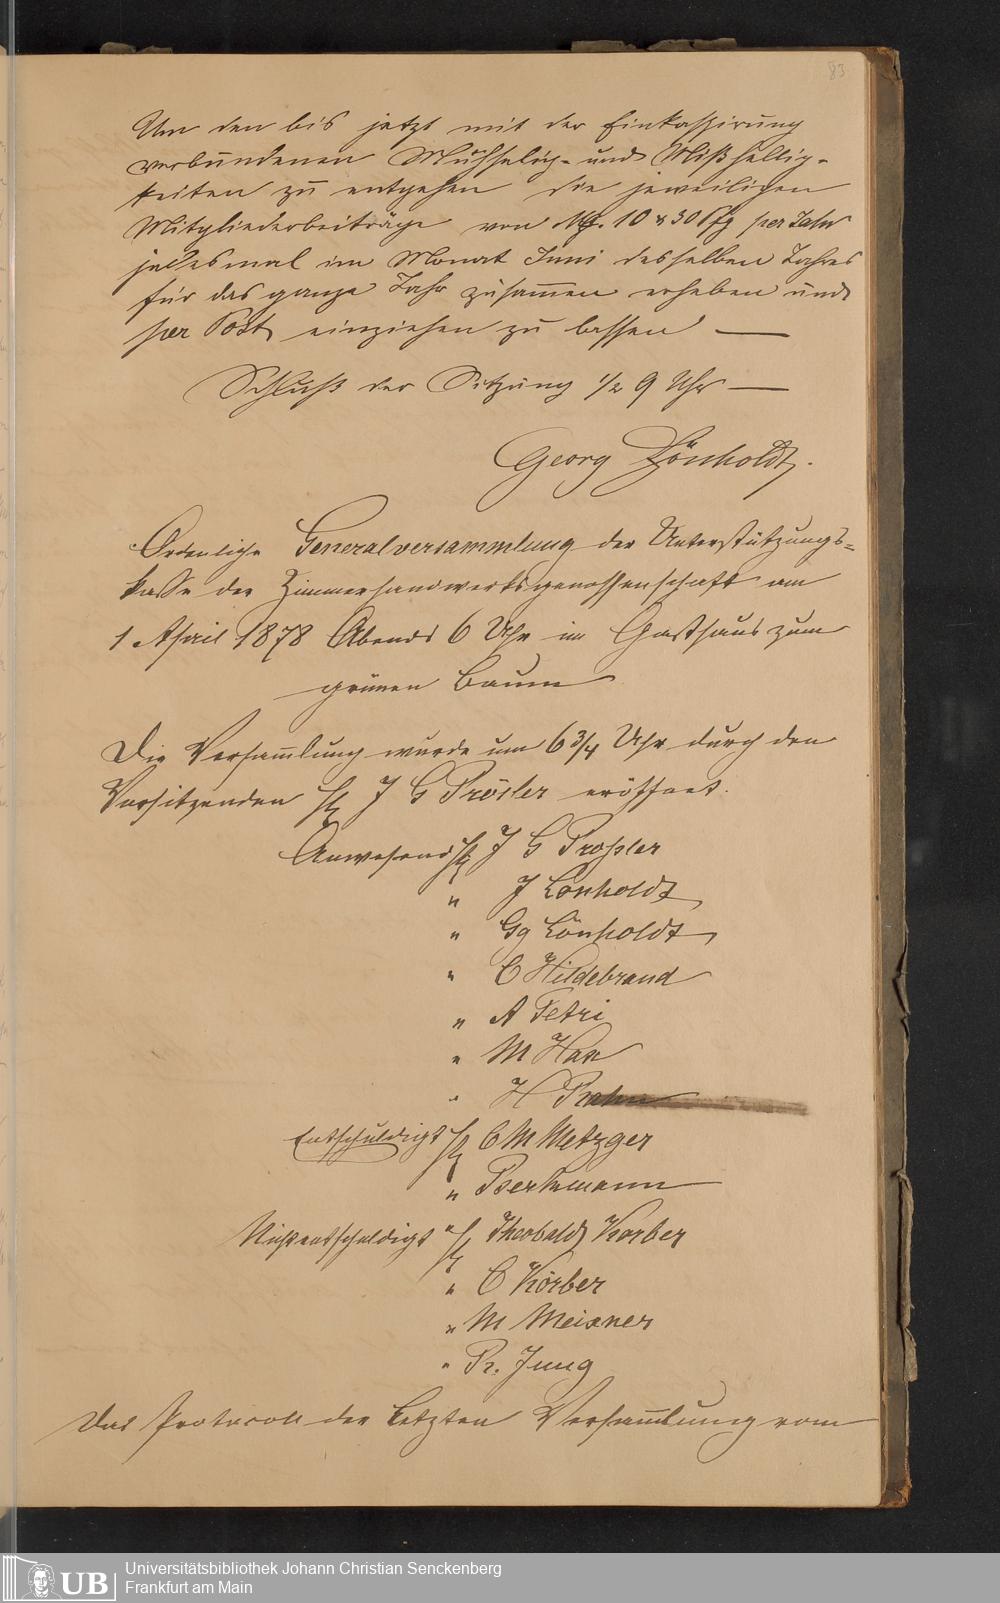 83
Um den bis jetzt mit der Einkassirung
verbundenen Mühselig- und Mißhellig-
keiten zu entgehen die jeweiligen
Mitgliederbeiträge von 10 & 50 Pfg per Jahr
jedesmal im Monat Juni desselben Jahres
für das ganze Jahr zusamen erheben und
per Post einziehen zu lassen —
Schluß der Sitzung ½ 9 Uhr —
Georg Lönholdt.
Ordenliche Generalversammlung der Unterstützungs-
kasse der Zimmerhandwerksgenossenschaft am
1 April 1878 Abends 6 Uhr im Gasthaus zum
grünen Baum
Die Versamlung wurde um 6 3/4 Uhr durch den
Vorsitzenden H J G Prösler eröffnet.
Anwesend H J G Proßler
" J Lönholdt
" Gg Lönholdt
" C Hildebrand
" A Petri
" M Han
" H
Entschuldigt H C M Metzger
"
Nichtentschuldigt " H Theobald Korber
" C Körber
" M Meixner
" Pr. Jung
Das Protocoll der letzten Versamlung vom
Universitätsbibliothek Johann Christian Senckenberg
Frankfurt am Main
UB